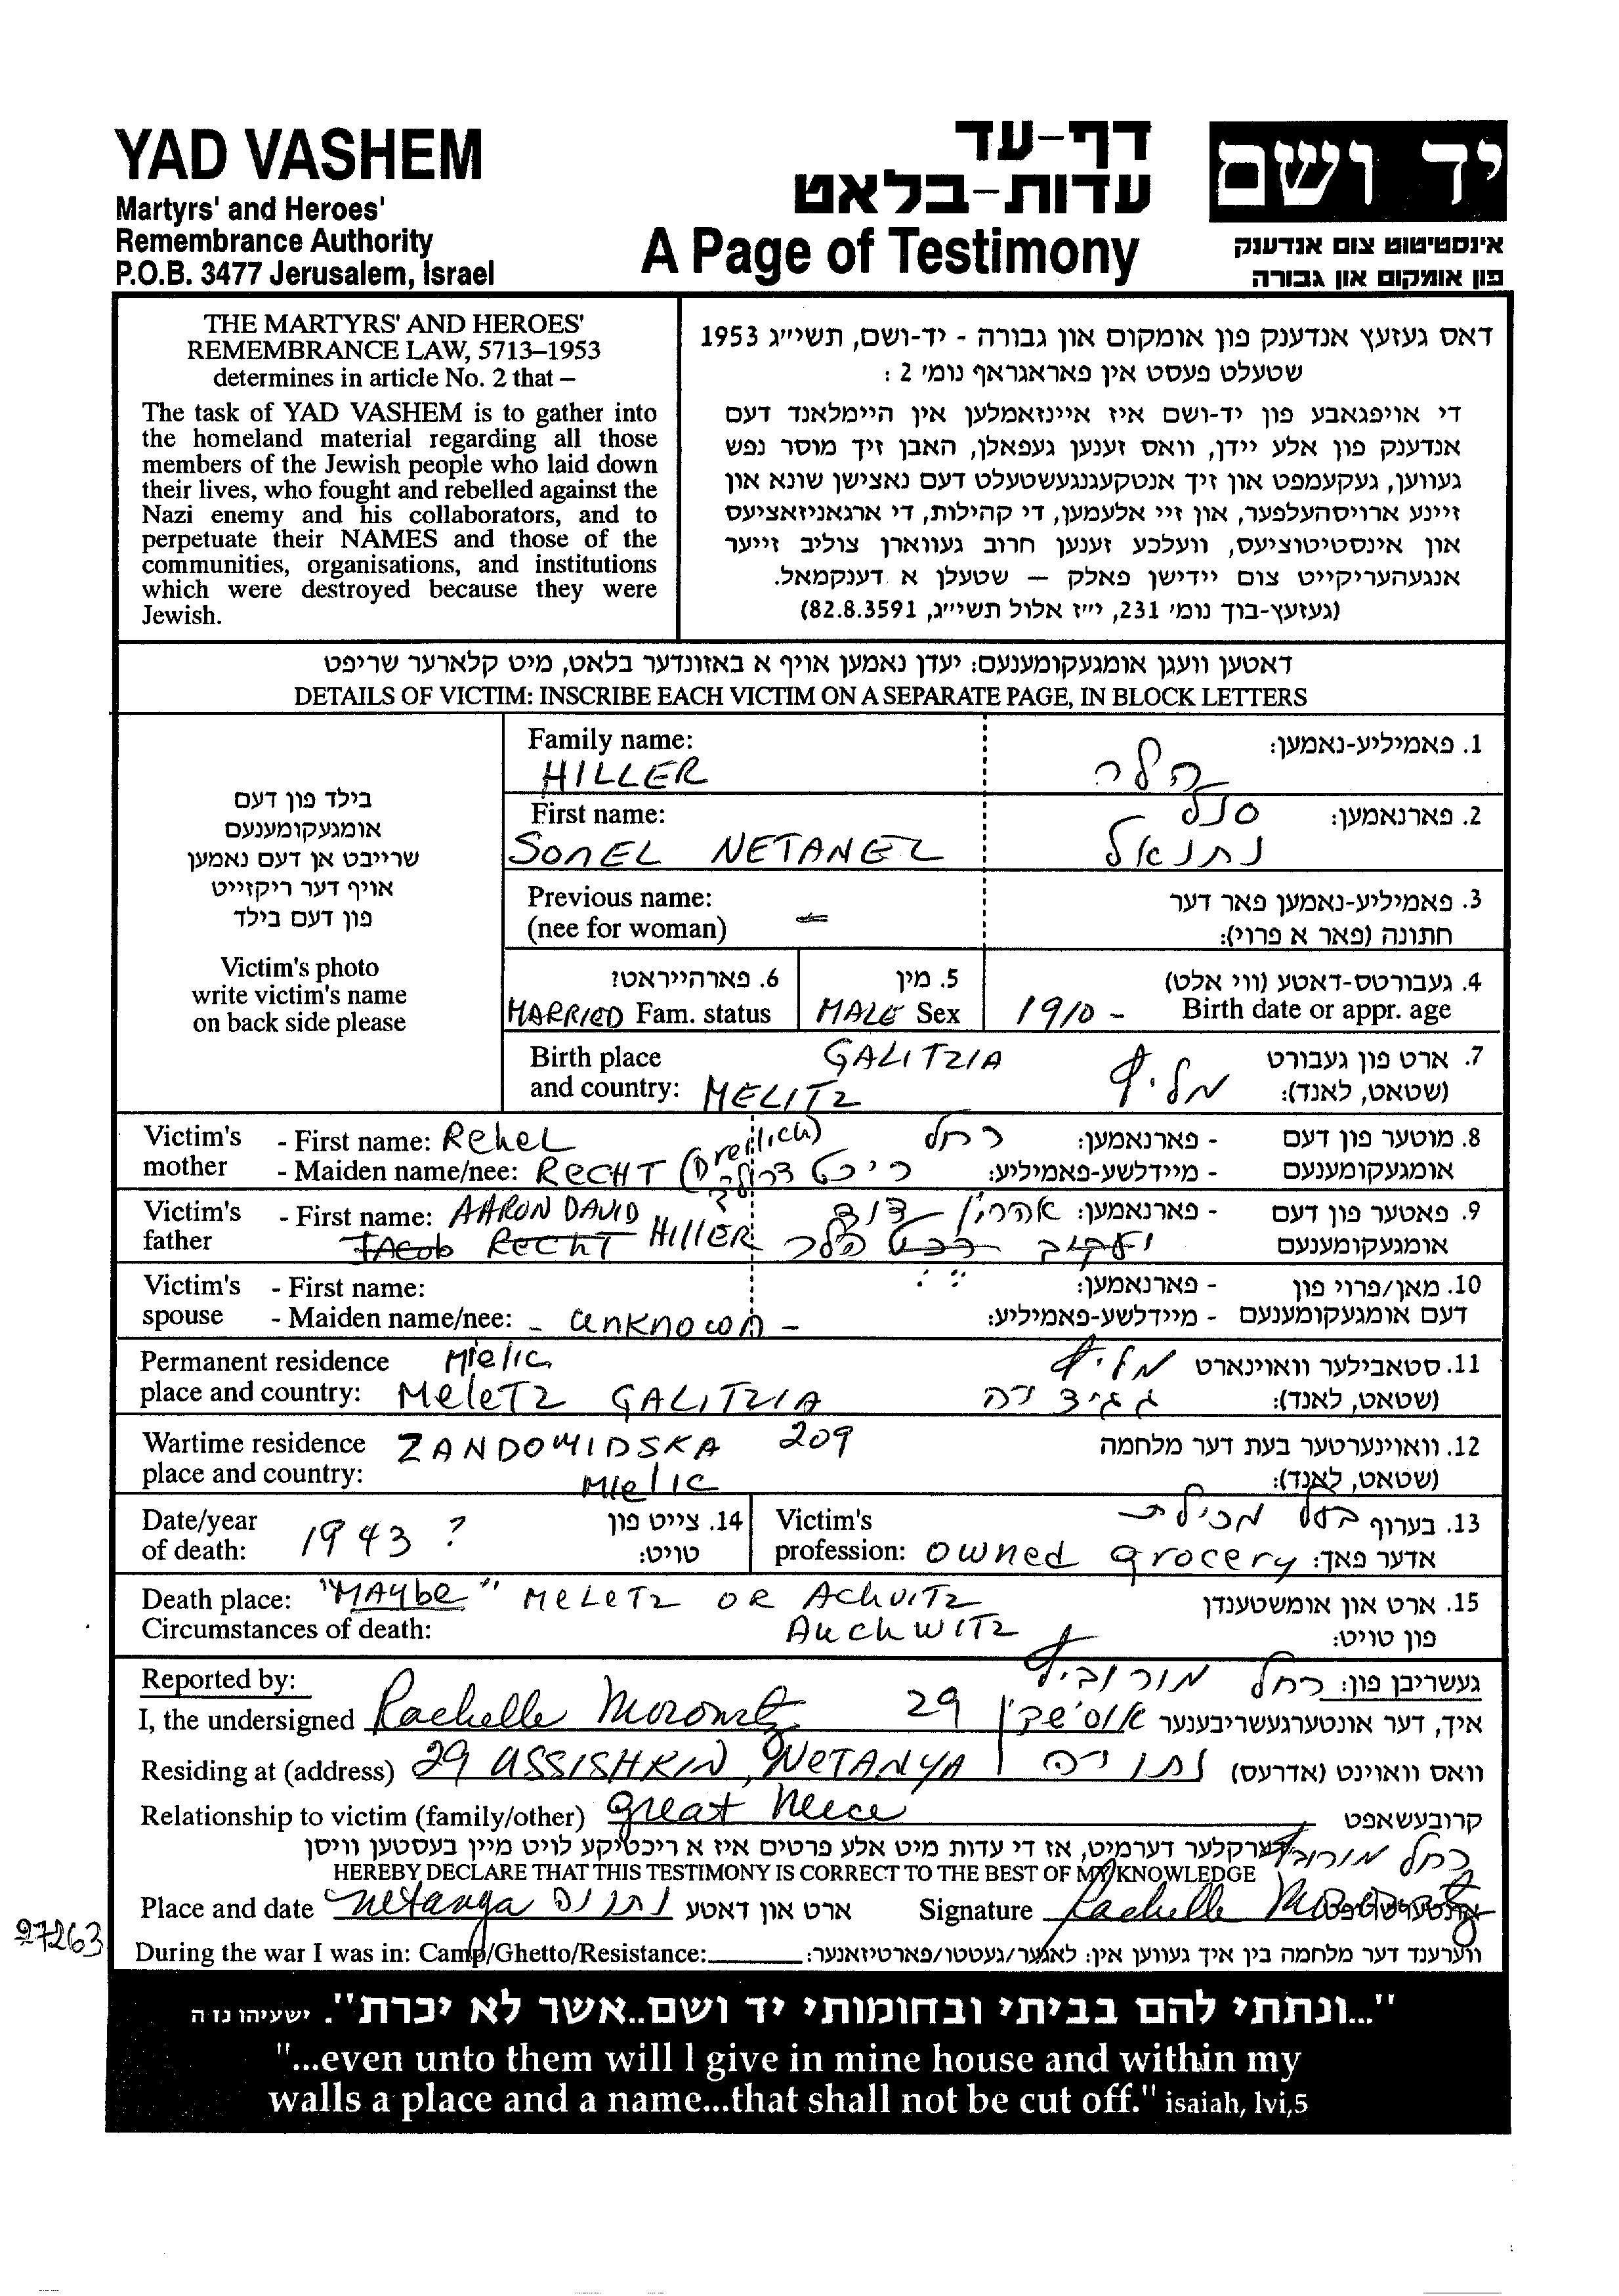 YAD VASHEM
Martyrs' and Heroes'
Remembrance Authority
P.O.B. 3477 Jerusalem, Israel
דף-עד
עדות-בלאט
A Page of Testimony
יד ושם
אינסטיטוט צום אנדענק
פון אומקום און גבורה
THE MARTYRS' AND HEROES'
REMEMBRANCE LAW, 5713–1953
determines in article No. 2 that –
The task of YAD VASHEM is to gather into
the homeland material regarding all those
members of the Jewish people who laid down
their lives, who fought and rebelled against the
Nazi enemy and his collaborators, and to
perpetuate their NAMES and those of the
communities, organisations, and institutions
which were destroyed because they were
Jewish.
דאס געזעץ אנדענק פון אומקום און גבורה - יד-ושם, תשי״ג 1953
שטעלט פעסט אין פאראגראף נומ׳ 2 :
די אויפגאבע פון יד-ושם איז איינזאמלען אין היימלאנד דעם
אנדענק פון אלע יידן, וואס זענען געפאלן, האבן זיך מוסר נפש
געווען, געקעמפט און זיך אנטקעגנגעשטעלט דעם נאצישן שונא און
זיינע ארויסהעלפער, און זיי אלעמען, די קהילות, די ארגאניזאציעס
און אינסטיטוציעס, וועלכע זענען חרוב געווארן צוליב זייער
אנגעהעריקייט צום יידישן פאלק — שטעלן א דענקמאל.
(געזעץ-בוך נומ׳ 132, י״ז אלול תשי״ג, 28.8.1953)
דאטען וועגן אומגעקומענעם: יעדן נאמען אויף א באזונדער בלאט, מיט קלארער שריפט
DETAILS OF VICTIM: INSCRIBE EACH VICTIM ON A SEPARATE PAGE, IN BLOCK LETTERS
בילד פון דעם
אומגעקומענעם
שרייבט אן דעם נאמען
אויף דער ריקזייט
פון דעם בילד
Victim's photo
write victim's name
on back side please
Family name: 1. פאמיליע-נאמען:
HILLER הלר
First name: 2. פארנאמען: סנל
SONEL NETANEL נתנאל
Previous name: 3. פאמיליע-נאמען פאר דער
(nee for woman) — חתונה (פאר א פרוי):
6. פארהייראט? 5. מין 4. געבורטס-דאטע (ווי אלט)
MARRIED Fam. status MALE Sex 1910 - Birth date or appr. age
Birth place GALITZIA 7. ארט פון געבורט
and country: MELITZ מליץ (שטאט, לאנד):
Victim's - First name: Rehel רחל 8. מוטער פון דעם - פארנאמען:
mother - Maiden name/nee: RECHT (Dreilich) אומגעקומענעם - מיידלשע-פאמיליע:
Victim's - First name: AARON DAVID אהרון דוד 9. פאטער פון דעם - פארנאמען:
father JACOB RECHT HILLER יעקב רכט הלר אומגעקומענעם
Victim's - First name: 10. מאן/פרוי פון - פארנאמען:
spouse - Maiden name/nee: - unknown - דעם אומגעקומענעם - מיידלשע-פאמיליע:
Permanent residence Mielic מליץ 11. סטאבילער וואוינארט
place and country: MeleTZ GALITZIA (שטאט, לאנד):
Wartime residence ZANDOMIDSKA 209 12. וואוינערטער בעת דער מלחמה
place and country: MIelIC (שטאט, לאנד):
Date/year 14. צייט פון Victim's בעל מכולת 13. בערוף
of death: 1943 ? טויט: profession: owned grocery אדער פאך:
Death place: "MAYbe" MELETZ OR AchvITZ 15. ארט און אומשטענדן
Circumstances of death: AuchWITZ פון טויט:
Reported by: געשריבן פון: רחל מורוביץ
I, the undersigned Rachelle Morovitz 29 אוסישקין איך, דער אונטערגעשריבענער
Residing at (address) 29 USSISHKIN, NETANYA נתניה וואס וואוינט (אדרעס)
Relationship to victim (family/other) great Neece קרובעשאפט
דערקלער דערמיט, אז די עדות מיט אלע פרטים איז א ריכטיקע לויט מיין בעסטען וויסן
רחל מורוביץ
HEREBY DECLARE THAT THIS TESTIMONY IS CORRECT TO THE BEST OF MY KNOWLEDGE
Place and date Netanya נתניה ארט און דאטע Signature Rachelle Morovitz אונטערשריפט
27263
During the war I was in: Camp/Ghetto/Resistance: ווערענד דער מלחמה בין איך געווען אין: לאגער/געטטו/פארטיזאנער:
"...ונתתי להם בביתי ובחומותי יד ושם..אשר לא יכרת". ישעיהו נז ה
"...even unto them will I give in mine house and within my
walls a place and a name...that shall not be cut off." isaiah, lvi,5